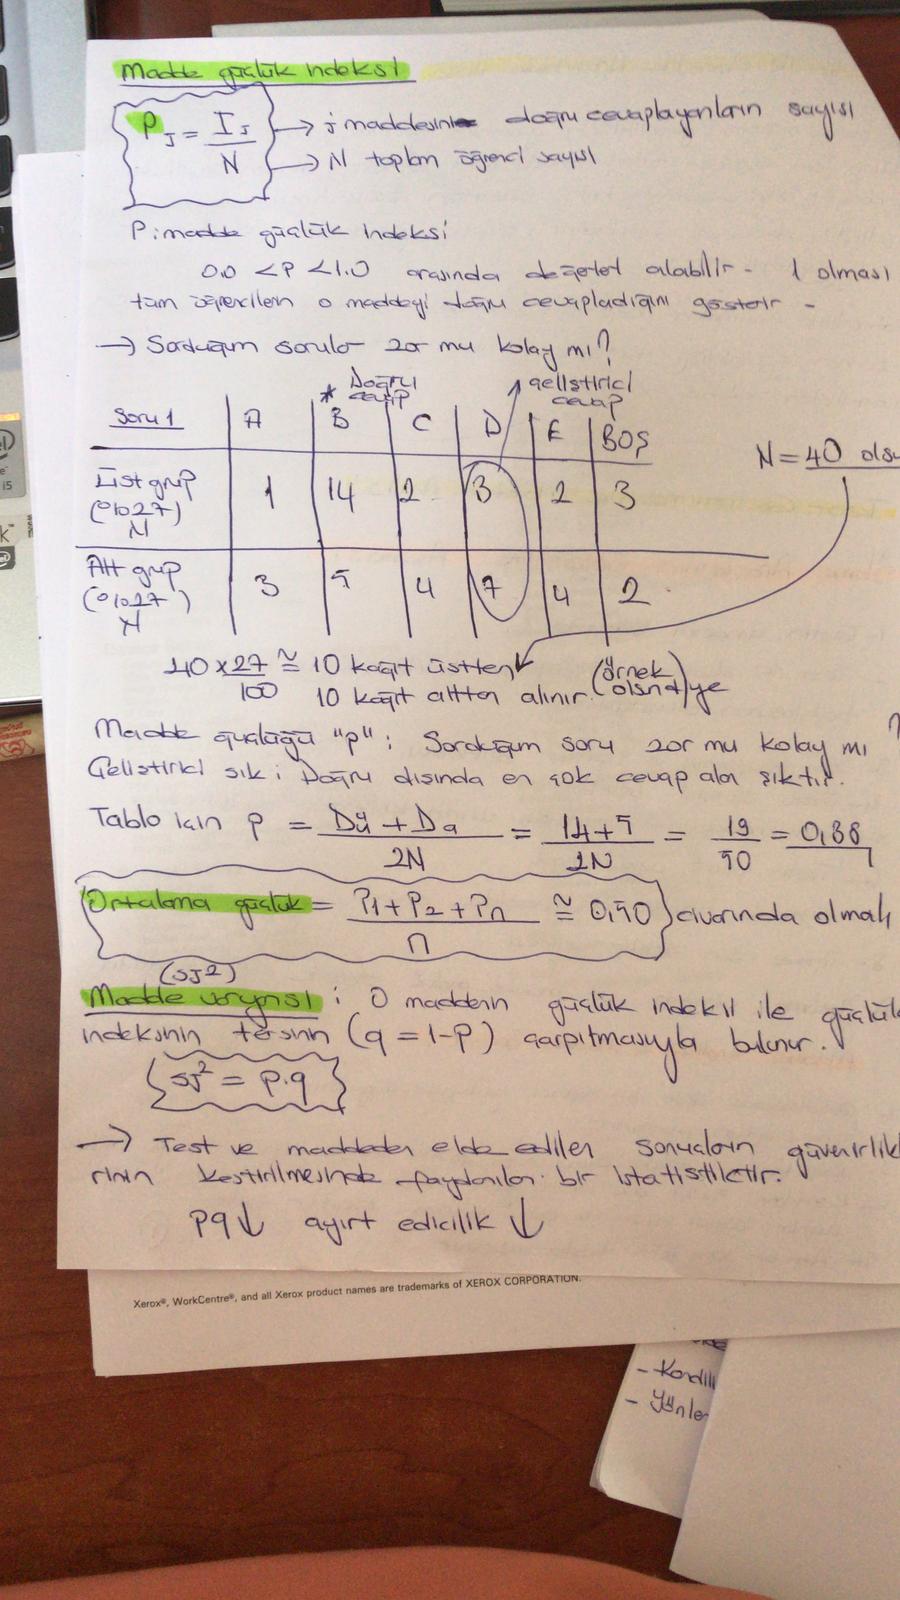 Madde güçlük indeksi
Pj = Ij / N → j maddesini doğru cevaplayanların sayısı
→ N toplam öğrenci sayısı
P: madde güçlük indeksi
0,0 < P < 1,0 arasında değerler alabilir - 1 olması
tüm öğrencilerin o maddeyi doğru cevapladığını gösterir -
→ Sorduğum sorular zor mu kolay mı?
* Doğru cevap
geliştirici cevap
Soru 1 A B C D E BOŞ
Üst grup (%27) N 1 14 2 3 2 3
N = 40 olsu
Alt grup (%27) N 3 5 4 7 4 2
40 x 27 / 100 ≅ 10 kağıt üstten
10 kağıt alttan alınır. (örnek olsnd) ye
Madde güçlüğü "p" : Sorduğum soru zor mu kolay mı ?
Geliştirici şık : Doğru dışında en çok cevap alan şıktır.
Tablo için p = Dü + Da / 2N = 14+5 / 2N = 19 / 50 = 0,38
Ortalama güçlük = P1 + P2 + Pn / n ≅ 0,50 civarında olmalı
(Sj²)
Madde varyansı : O maddenin güçlük indeksi ile güçlük
indeksinin tersinin (q = 1-p) çarpıtmasıyla bulunur.
Sj² = p.q
→ Test ve maddeden elde edilen sonuçların güvenirlik
rinin kestirilmesinde faydanılan bir istatistiktir.
pq↓ ayırt edicilik ↓
Xerox®, WorkCentre®, and all Xerox product names are trademarks of XEROX CORPORATION.
- Kondil
- Yünler